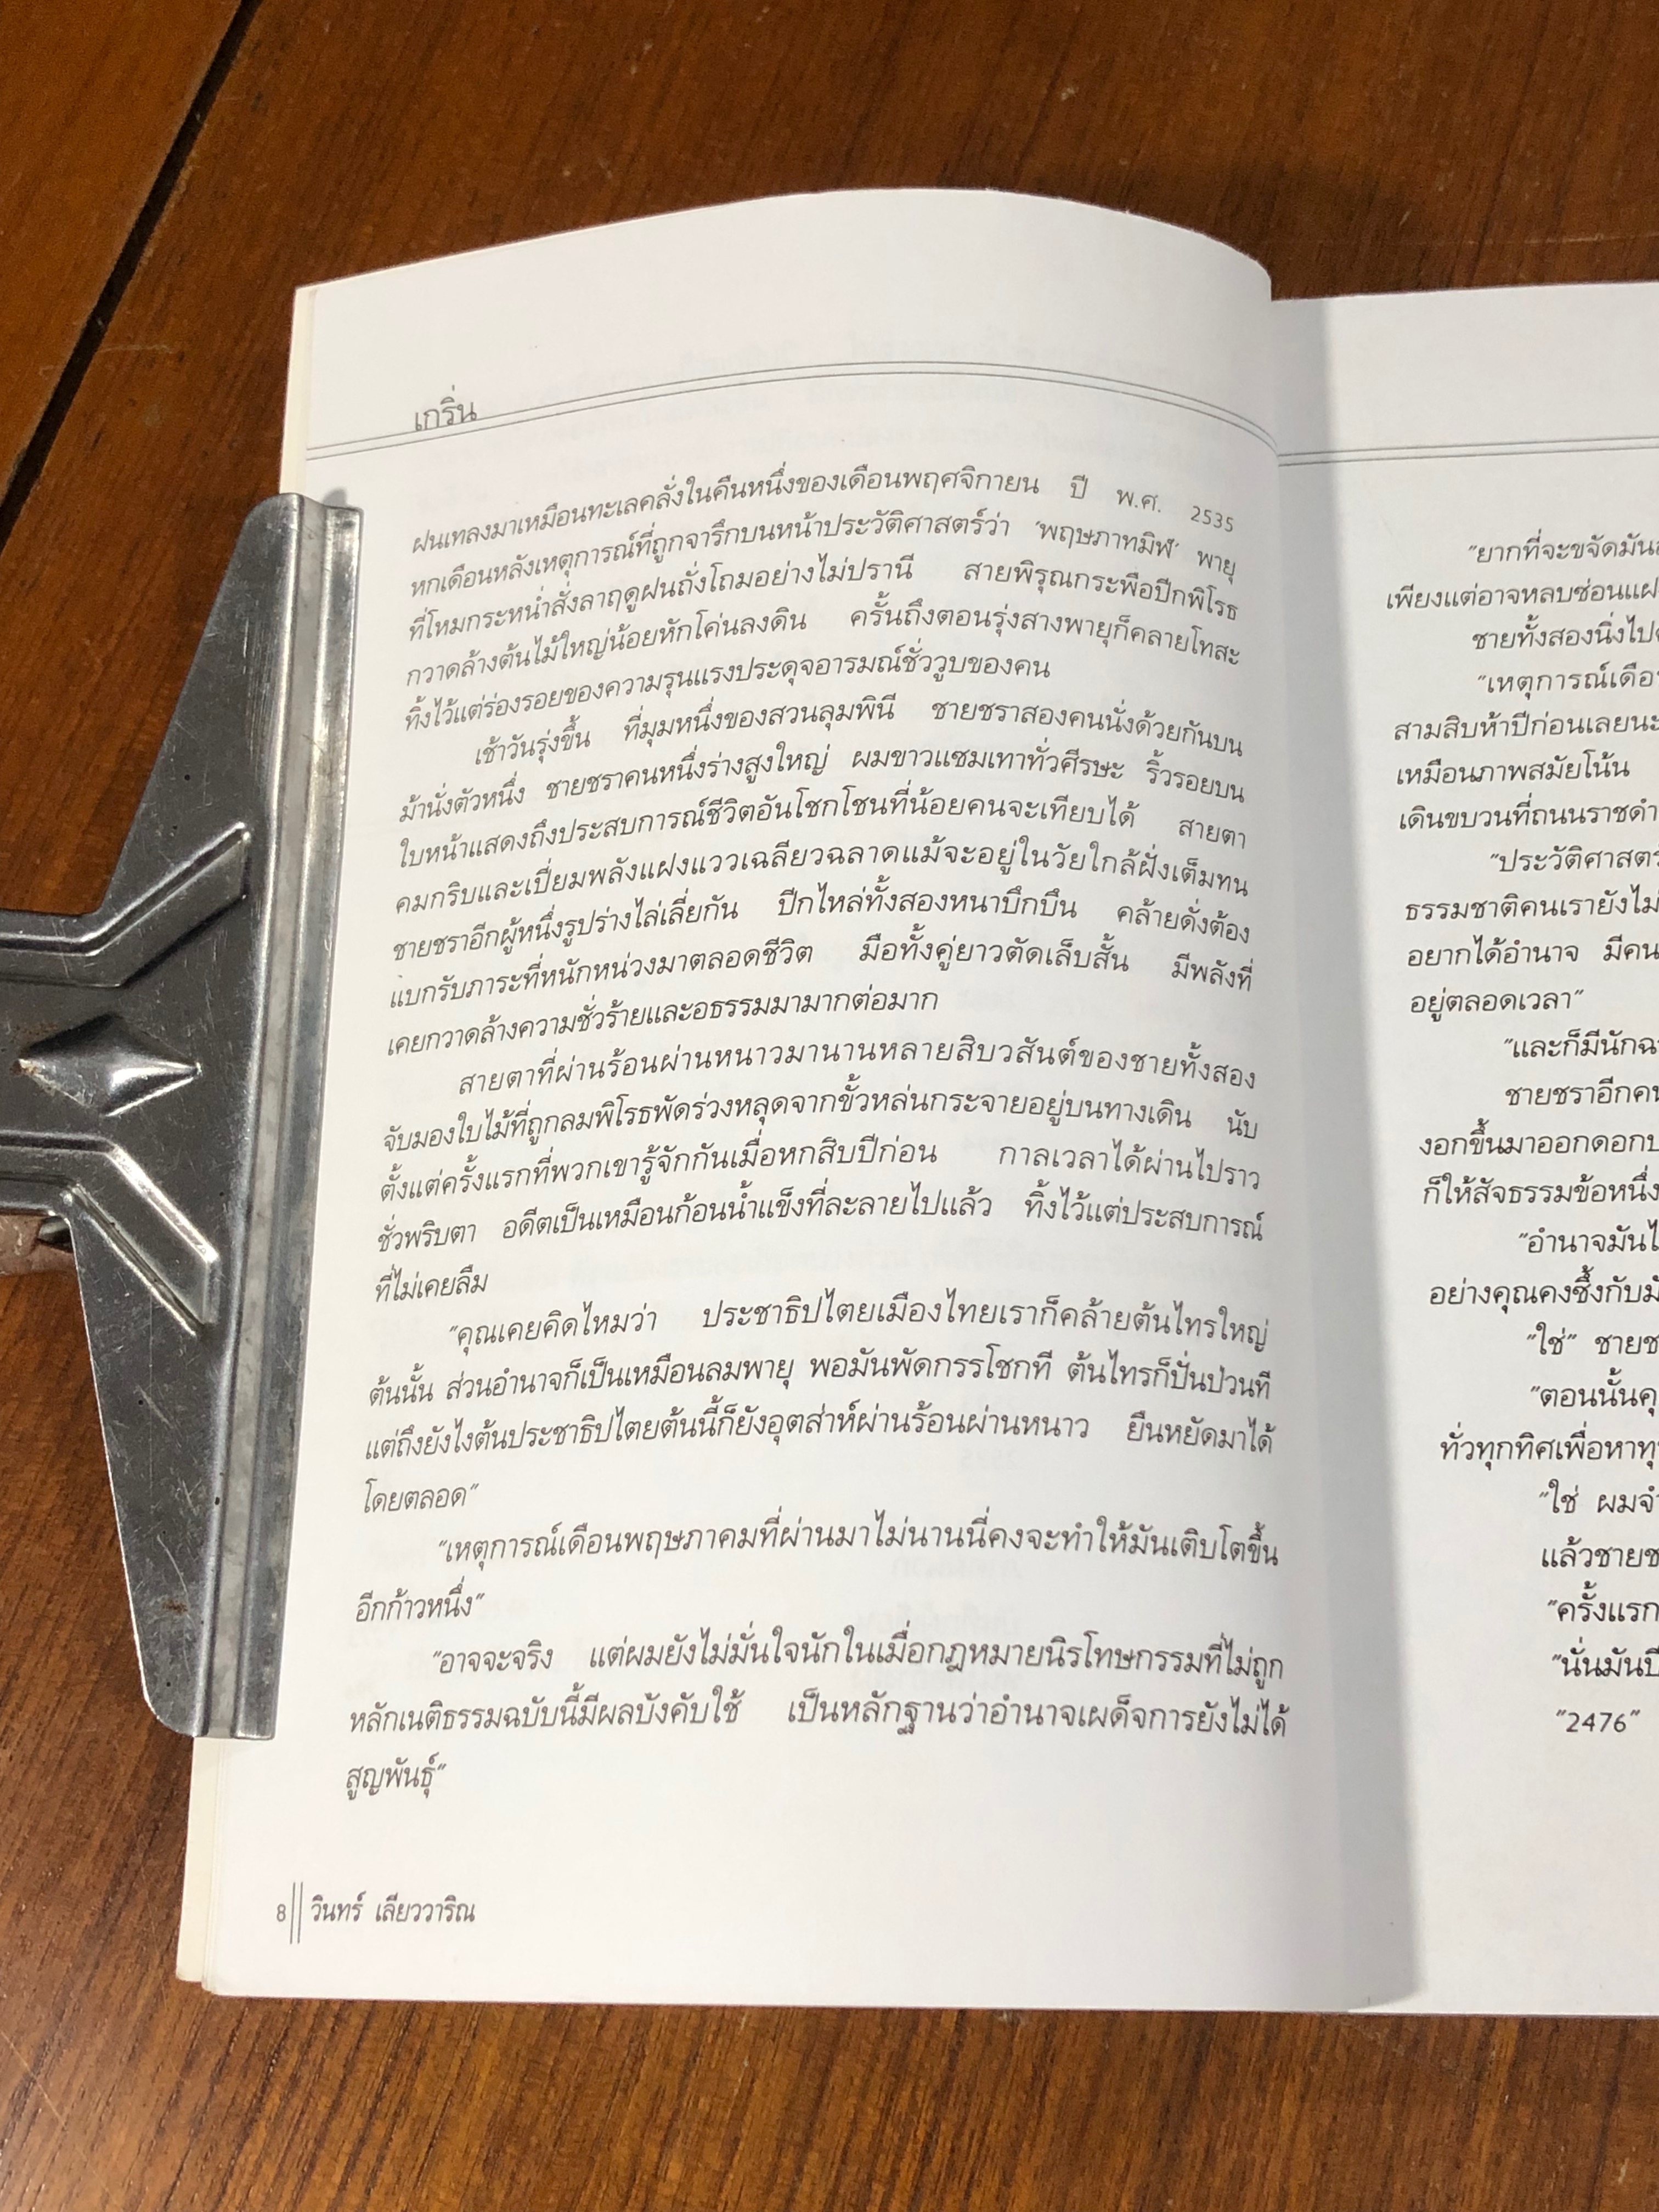 เกริ่น
ฝนเทลงมาเหมือนทะเลคลั่งในคืนหนึ่งของเดือนพฤศจิกายน ปี พ.ศ. 2535
หกเดือนหลังเหตุการณ์ที่ถูกจารึกบนหน้าประวัติศาสตร์ว่า ‘พฤษภาทมิฬ’ พายุ
ที่โหมกระหน่ำสั่งลาฤดูฝนถั่งโถมอย่างไม่ปรานี สายพิรุณกระพือปีกพิโรธ
กวาดล้างต้นไม้ใหญ่น้อยหักโค่นลงดิน ครั้นถึงตอนรุ่งสางพายุก็คลายโทสะ
ทิ้งไว้แต่ร่องรอยของความรุนแรงประดุจอารมณ์ชั่ววูบของคน
เช้าวันรุ่งขึ้น ที่มุมหนึ่งของสวนลุมพินี ชายชราสองคนนั่งด้วยกันบน
ม้านั่งตัวหนึ่ง ชายชราคนหนึ่งร่างสูงใหญ่ ผมขาวแซมเทาทั่วศีรษะ ริ้วรอยบน
ใบหน้าแสดงถึงประสบการณ์ชีวิตอันโชกโชนที่น้อยคนจะเทียบได้ สายตา
คมกริบและเปี่ยมพลังแฝงแววเฉลียวฉลาดแม้จะอยู่ในวัยใกล้ฝั่งเต็มทน
ชายชราอีกผู้หนึ่งรูปร่างไล่เลี่ยกัน ปีกไหล่ทั้งสองหนาบึกบึน คล้ายดั่งต้อง
แบกรับภาระที่หนักหน่วงมาตลอดชีวิต มือทั้งคู่ยาวตัดเล็บสั้น มีพลังที่
เคยกวาดล้างความชั่วร้ายและอธรรมมามากต่อมาก
สายตาที่ผ่านร้อนผ่านหนาวมานานหลายสิบวสันต์ของชายทั้งสอง
จับมองใบไม้ที่ถูกลมพิโรธพัดร่วงหลุดจากขั้วหล่นกระจายอยู่บนทางเดิน นับ
ตั้งแต่ครั้งแรกที่พวกเขารู้จักกันเมื่อหกสิบปีก่อน กาลเวลาได้ผ่านไปราว
ชั่วพริบตา อดีตเป็นเหมือนก้อนน้ำแข็งที่ละลายไปแล้ว ทิ้งไว้แต่ประสบการณ์
ที่ไม่เคยลืม
“คุณเคยคิดไหมว่า ประชาธิปไตยเมืองไทยเราก็คล้ายต้นไทรใหญ่
ต้นนั้น ส่วนอำนาจก็เป็นเหมือนลมพายุ พอมันพัดกรรโชกที ต้นไทรก็ปั่นป่วนที
แต่ถึงยังไงต้นประชาธิปไตยต้นนี้ก็ยังอุตส่าห์ผ่านร้อนผ่านหนาว ยืนหยัดมาได้
โดยตลอด”
“เหตุการณ์เดือนพฤษภาคมที่ผ่านมาไม่นานนี่คงจะทำให้มันเติบโตขึ้น
อีกก้าวหนึ่ง”
“อาจจะจริง แต่ผมยังไม่มั่นใจนักในเมื่อกฎหมายนิรโทษกรรมที่ไม่ถูก
หลักเนติธรรมฉบับนี้มีผลบังคับใช้ เป็นหลักฐานว่าอำนาจเผด็จการยังไม่ได้
สูญพันธุ์”
8 วินทร์ เลียววาริณ
“ยากที่จะขจัดมัน
เพียงแต่อาจหลบซ่อนแฝ
ชายทั้งสองนิ่งไป
“เหตุการณ์เดือ
สามสิบห้าปีก่อนเลยนะ
เหมือนภาพสมัยโน้น
เดินขบวนที่ถนนราชดำ
“ประวัติศาสตร
ธรรมชาติคนเรายังไม่
อยากได้อำนาจ มีคน
อยู่ตลอดเวลา”
“และก็มีนักฉ
ชายชราอีกคน
งอกขึ้นมาออกดอก
ก็ให้สัจธรรมข้อหนึ่ง
“อำนาจมันไ
อย่างคุณคงซึ้งกับมั
“ใช่” ชายช
“ตอนนั้นคุ
ทั่วทุกทิศเพื่อหาทุ
“ใช่ ผมจำ
แล้วชายช
“ครั้งแรก
“นั่นมันปี
“2476”